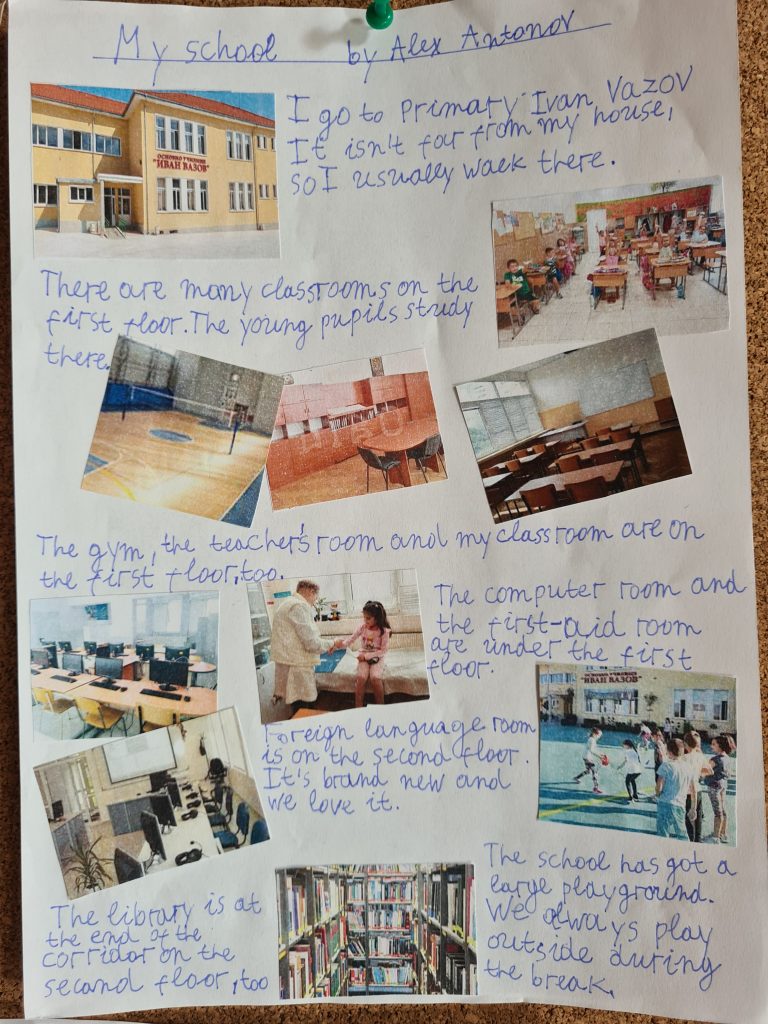 My school by Alex Antonov
ОСНОВНО УЧИЛИЩЕ
"ИВАН ВАЗОВ"
I go to Primary Ivan Vazov
It isn't far from my house,
so I usually walk there.
There are many classrooms on the
first floor. The young pupils study
there.
The gym, the teacher's room and my classroom are on
the first floor, too.
The computer room and
the first-aid room
are under the first
floor.
Foreign language room
is on the second floor.
It's brand new and
we love it.
ОСНОВНО УЧИЛИЩЕ
"ИВАН ВАЗОВ"
The school has got a
large playground.
We always play
outside during
the break.
The library is at
the end of the
corridor on the
second floor, too